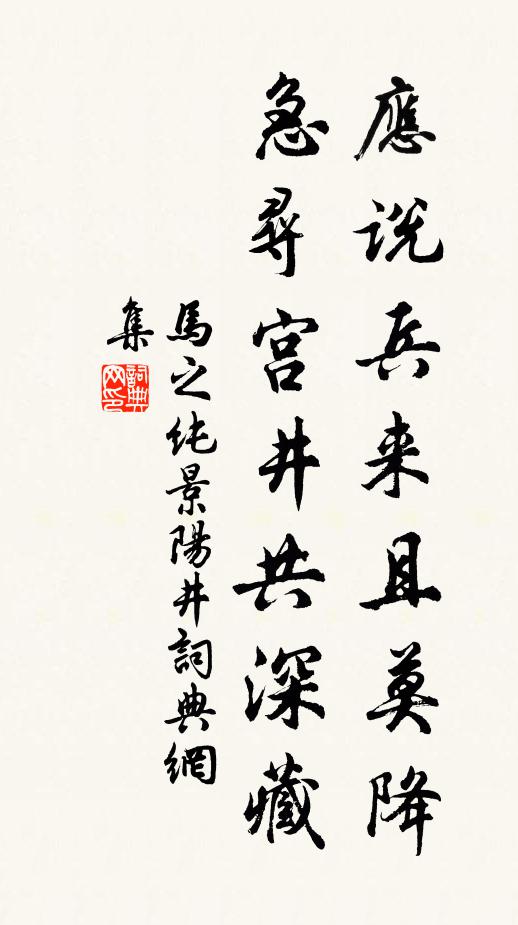 應説兵来且莫降
急尋宮井共深藏
馬之純景陽井詞典網
集
詞典
网印